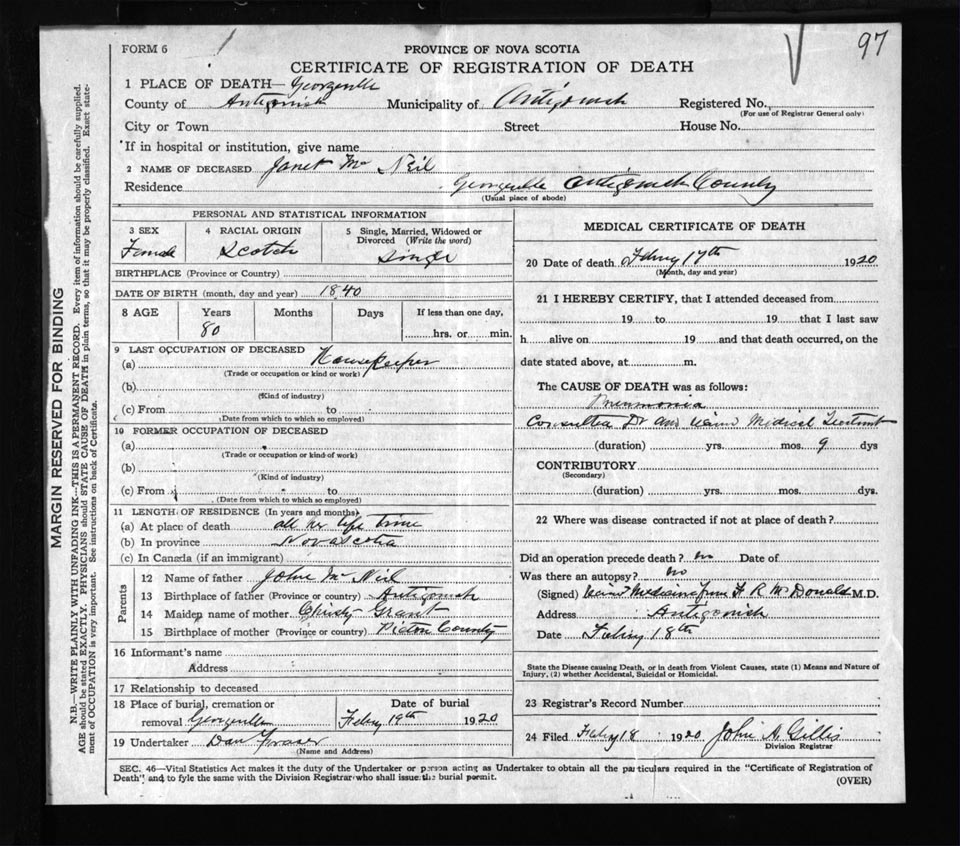 97
FORM 6
PROVINCE OF NOVA SCOTIA
CERTIFICATE OF REGISTRATION OF DEATH
1 PLACE OF DEATH— Georgeville
County of Antigonish Municipality of Antigonish Registered No.
(For use of Registrar General only)
City or Town Street House No.
If in hospital or institution, give name
2 NAME OF DECEASED Janet Mc Neil
Residence Georgeville Antigonish County
(Usual place of abode)
PERSONAL AND STATISTICAL INFORMATION
3 SEX 4 RACIAL ORIGIN 5 Single, Married, Widowed or Divorced (Write the word)
Female Scotch Single
BIRTHPLACE (Province or Country)
DATE OF BIRTH (month, day and year) 1840
8 AGE Years Months Days If less than one day,
80 hrs. or min.
9 LAST OCCUPATION OF DECEASED
(a) Housekeeper
(Trade or occupation or kind or work)
(b)
(Kind of industry)
(c) From to
(Date from which to which so employed)
10 FORMER OCCUPATION OF DECEASED
(a)
(Trade or occupation or kind of work)
(b)
(Kind of industry)
(c) From to
(Date from which to which so employed)
11 LENGTH OF RESIDENCE (In years and months)
(a) At place of death all her life time
(b) In province Nova Scotia
(c) In Canada (if an immigrant)
Parents
12 Name of father John Mc Neil
13 Birthplace of father (Province or country) Antigonish
14 Maiden name of mother Christy Grant
15 Birthplace of mother (Province or country) Pictou County
16 Informant's name
Address
17 Relationship to deceased
18 Place of burial, cremation or removal Georgeville
Date of burial
Febry 19th 1920
19 Undertaker Dan Fraser
(Name and Address)
MEDICAL CERTIFICATE OF DEATH
20 Date of death Febry 17th 1920
(Month, day and year)
21 I HEREBY CERTIFY, that I attended deceased from
19 to 19 that I last saw
h alive on 19 and that death occurred, on the
date stated above, at m.
The CAUSE OF DEATH was as follows:
Pneumonia
Consulted Dr and Medical
(duration) yrs. mos. 9 dys
CONTRIBUTORY
(Secondary)
(duration) yrs. mos. dys.
22 Where was disease contracted if not at place of death?
Did an operation precede death? no Date of
Was there an autopsy? no
(Signed) Medicine from F. R. McDonald M.D.
Address Antigonish
Date Febry 18th
State the Disease causing Death, or in death from Violent Causes, state (1) Means and Nature of
Injury, (2) whether Accidental, Suicidal or Homicidal.
23 Registrar's Record Number
24 Filed Febry 18 1920 John A. Gillis
Division Registrar
SEC. 46—Vital Statistics Act makes it the duty of the Undertaker or person acting as Undertaker to obtain all the particulars required in the "Certificate of Registration of
Death" and to fyle the same with the Division Registrar who shall issue the burial permit.
(OVER)
MARGIN RESERVED FOR BINDING
N.B.—WRITE PLAINLY WITH UNFADING INK—THIS IS A PERMANENT RECORD. Every item of information should be carefully supplied.
AGE should be stated EXACTLY. PHYSICIANS should STATE CAUSE OF DEATH in plain terms, so that it may be properly classified. Exact state-
ment of OCCUPATION is very important. See instructions on back of Certificate.